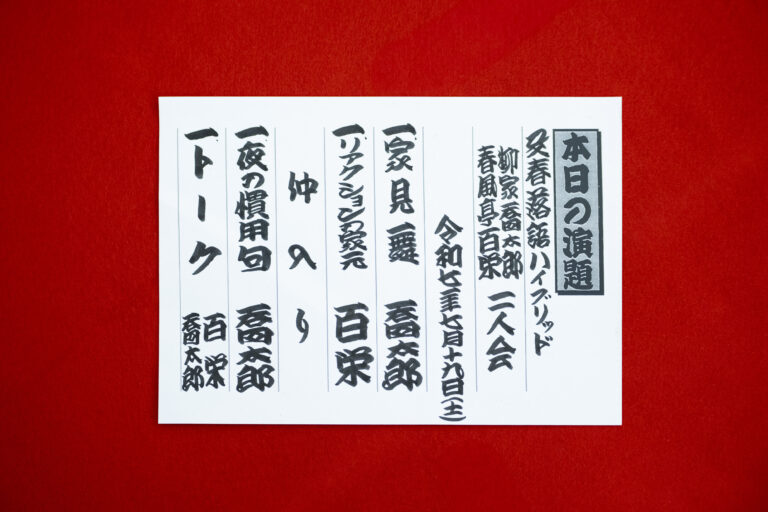 本日の演題
文春落語ハイブリッド
柳家喬太郎
春風亭百栄
二人会
令和七年七月十九日(土)
一家見舞 喬太郎
一リアクションの家元 百栄
仲入り
一夜の慣用句 喬太郎
一トーク 百栄
喬太郎